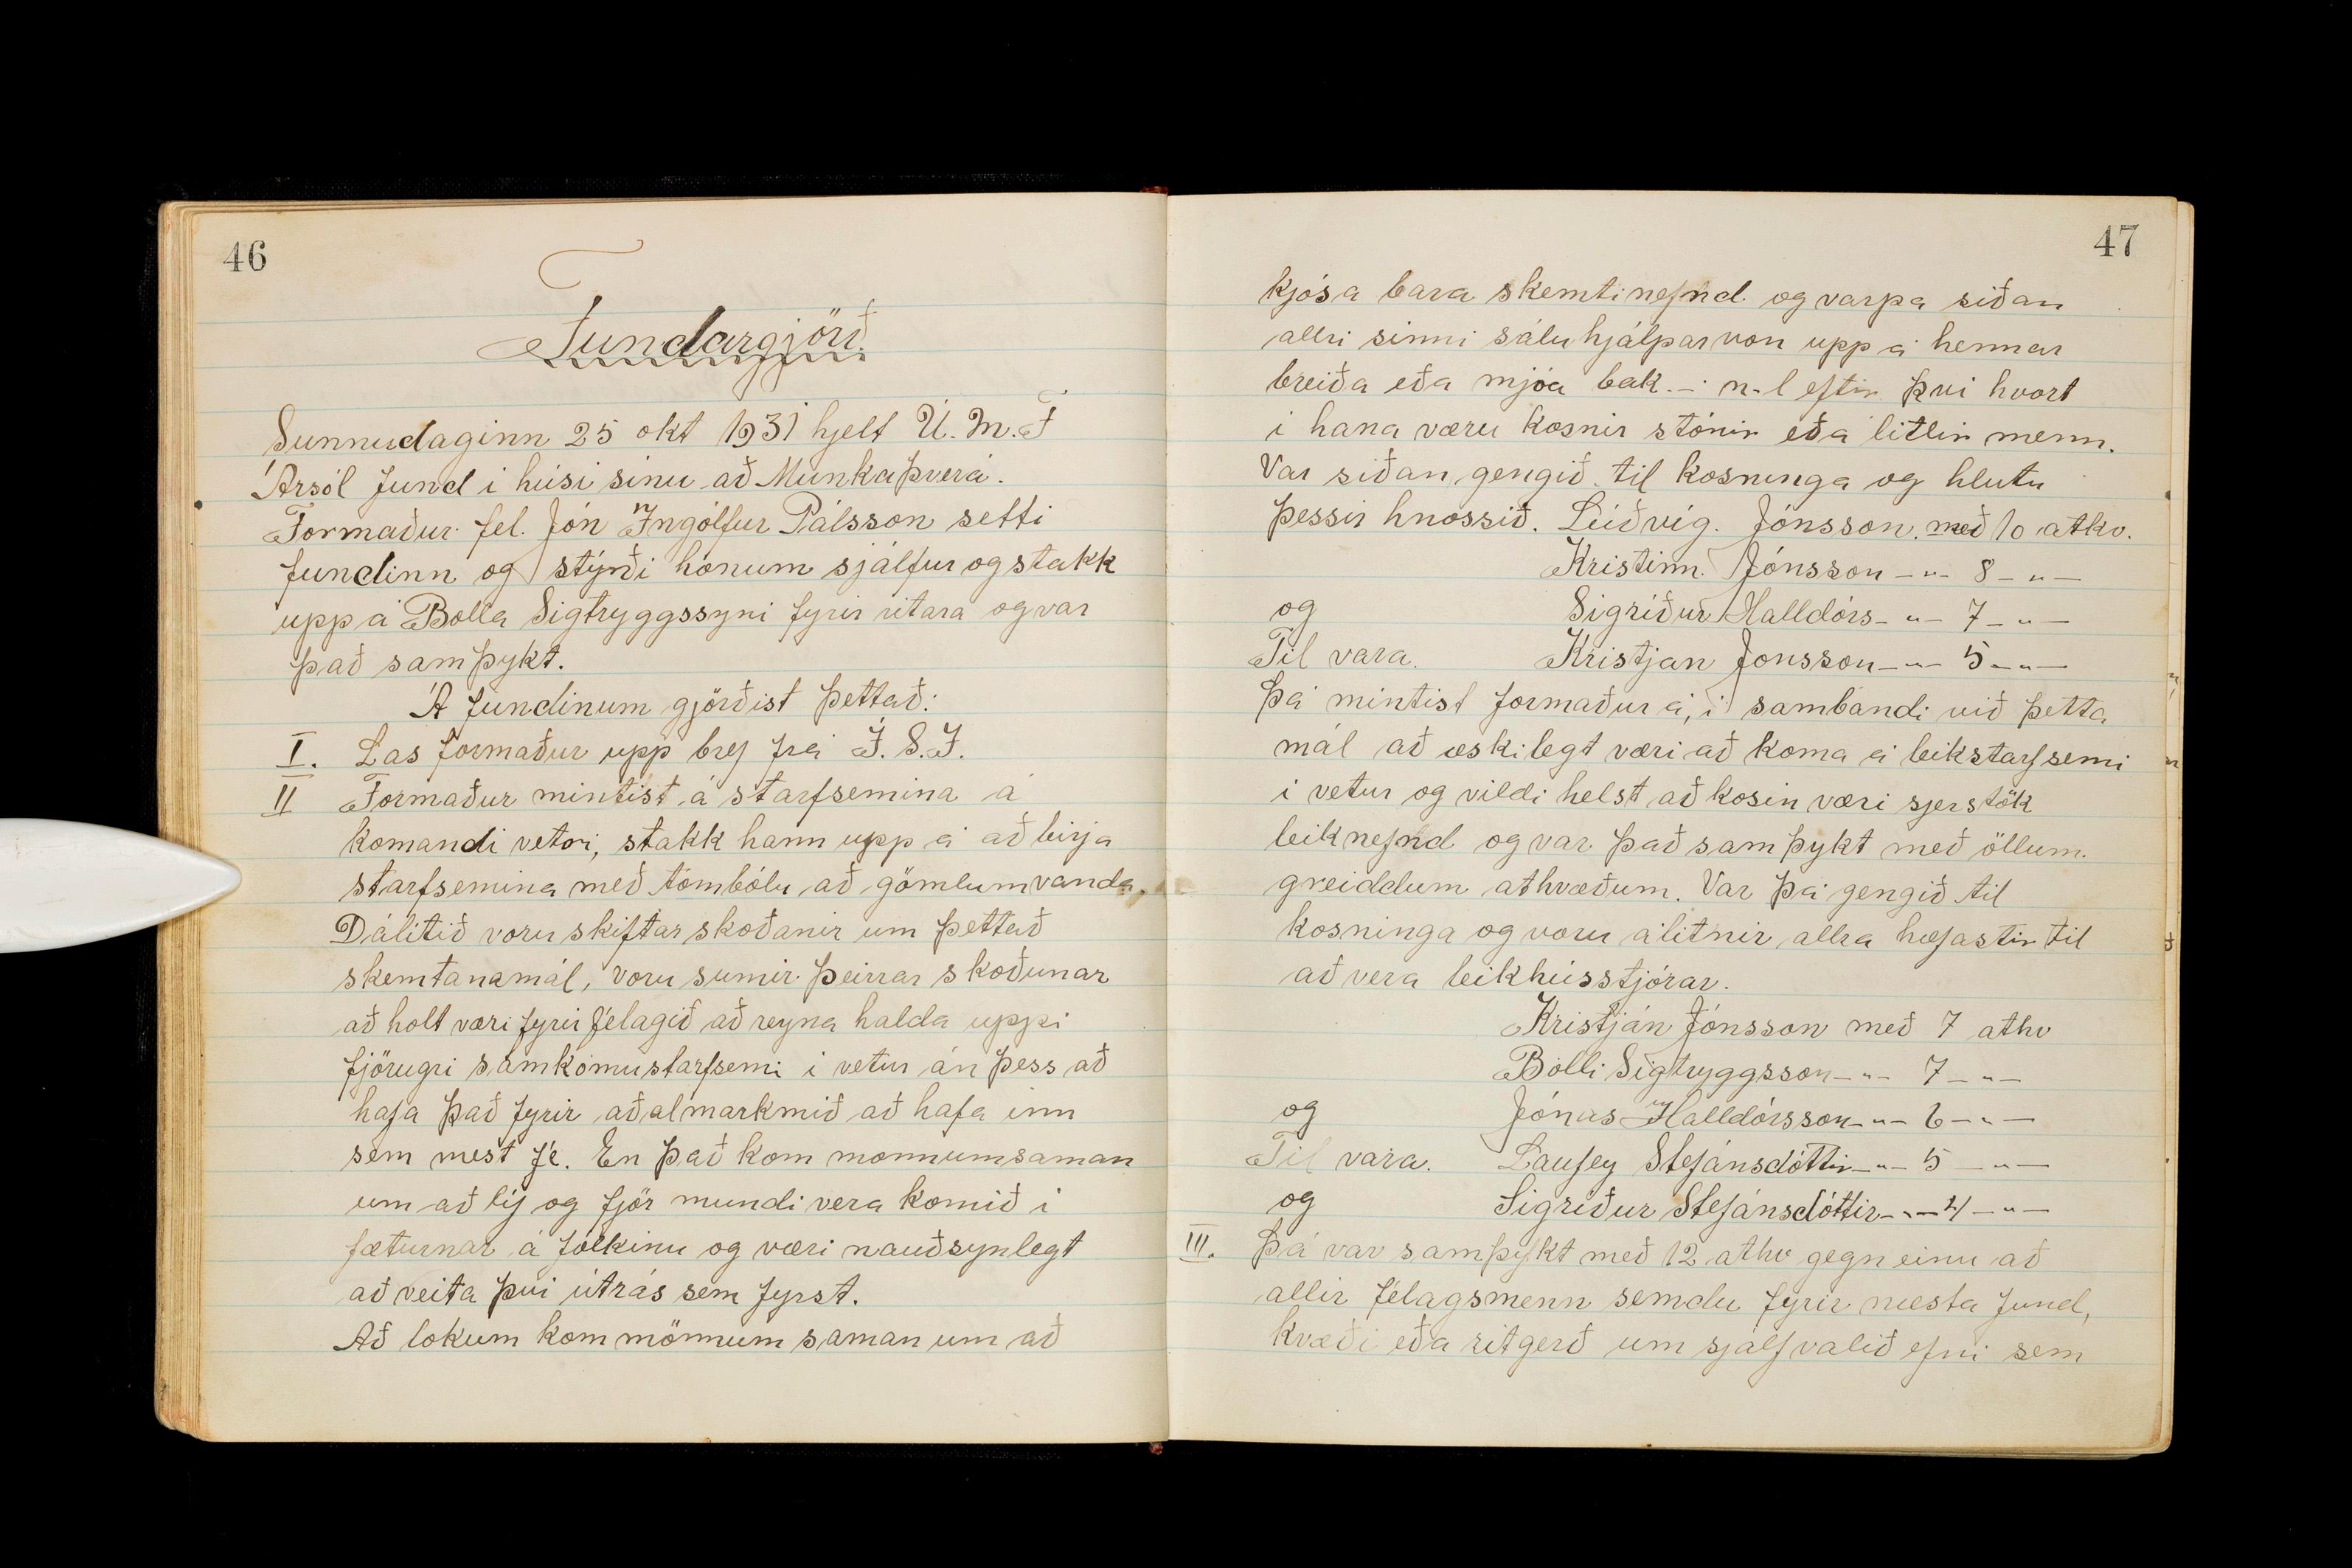 46
Fundargjörð.
Sunnudaginn 25 okt 1931 hjelt U.M.F
Ársól fund i húsi sinu að Munkaþverá.
Formaður fel. Jón Ingólfur Pálsson setti
fundinn og stýrði hónum sjálfur og stakk
upp á Bolla Sigtryggssyni fyrir ritara og var
það samþykt.
Á fundinum gjörðist þettað:
I. Las formaður upp bref frá Í.S.Í.
II Formaður mintist á starfsemina á
komandi vetri, stakk hann upp á að birja
starfsemina með tómbólu að gömlum vanda.
Dálitið voru skiftar skoðanir um þettað
skemtanamál, voru sumir þeirrar skoðunar
að holt væri fyrir félagið að reyna halda uppi
fjörugri samkomustarfsemi i vetur án þess að
hafa það fyrir aðalmarkmið að hafa inn
sem mest fé. En það kom monnum saman
um að líf og fjör mundi vera komið i
fæturnar á fólkinu og væri nauðsynlegt
að veita þvi útrás sem fyrst.
Að lokum kom mönnum saman um að
47
kjósa bara skemtinefnd og varpa siðan
allri sinni sáluhjálparvon upp á hennar
breiða eða mjóa bak - n-l eftir þvi hvort
i hana væru kosnir stórir eða litlir menn.
Var siðan gengið til kosninga og hlutu
þessir hnossið. Leiðvíg. Jónsson. með 10 atkv.
Kristinn. Jónsson -"- 8 -"-
og Sigriður Halldórs- "- 7 -"-
Til vara. Kristjan Jonsson -"- 5 -"-
Þá mintist formaður á, i sambandi við þetta
mál að æskilegt væri að koma á leikstarfsemi
i vetur og vildi helst að kosin væri sjerstök
leiknefnd og var það samþykt með öllum
greiddum athvæðum. Var þá gengið til
kosninga og voru álitnir allra hæfastir til
að vera leikhússtjórar.
Kristján Jónsson með 7 athv
Bolli Sigtryggsson -"- 7 -"-
og Jónas Halldórsson -"- 6 -"-
Til vara. Laufey Stefánsdóttir -"- 5 -"-
og Sigriður Stefánsdóttir -"- 4 -"-
III. Þá var samþykt með 12 athv gegn einu að
allir félagsmenn semdu fyrir næsta fund,
kvæði eða ritgerð um sjálfvalið efni sem